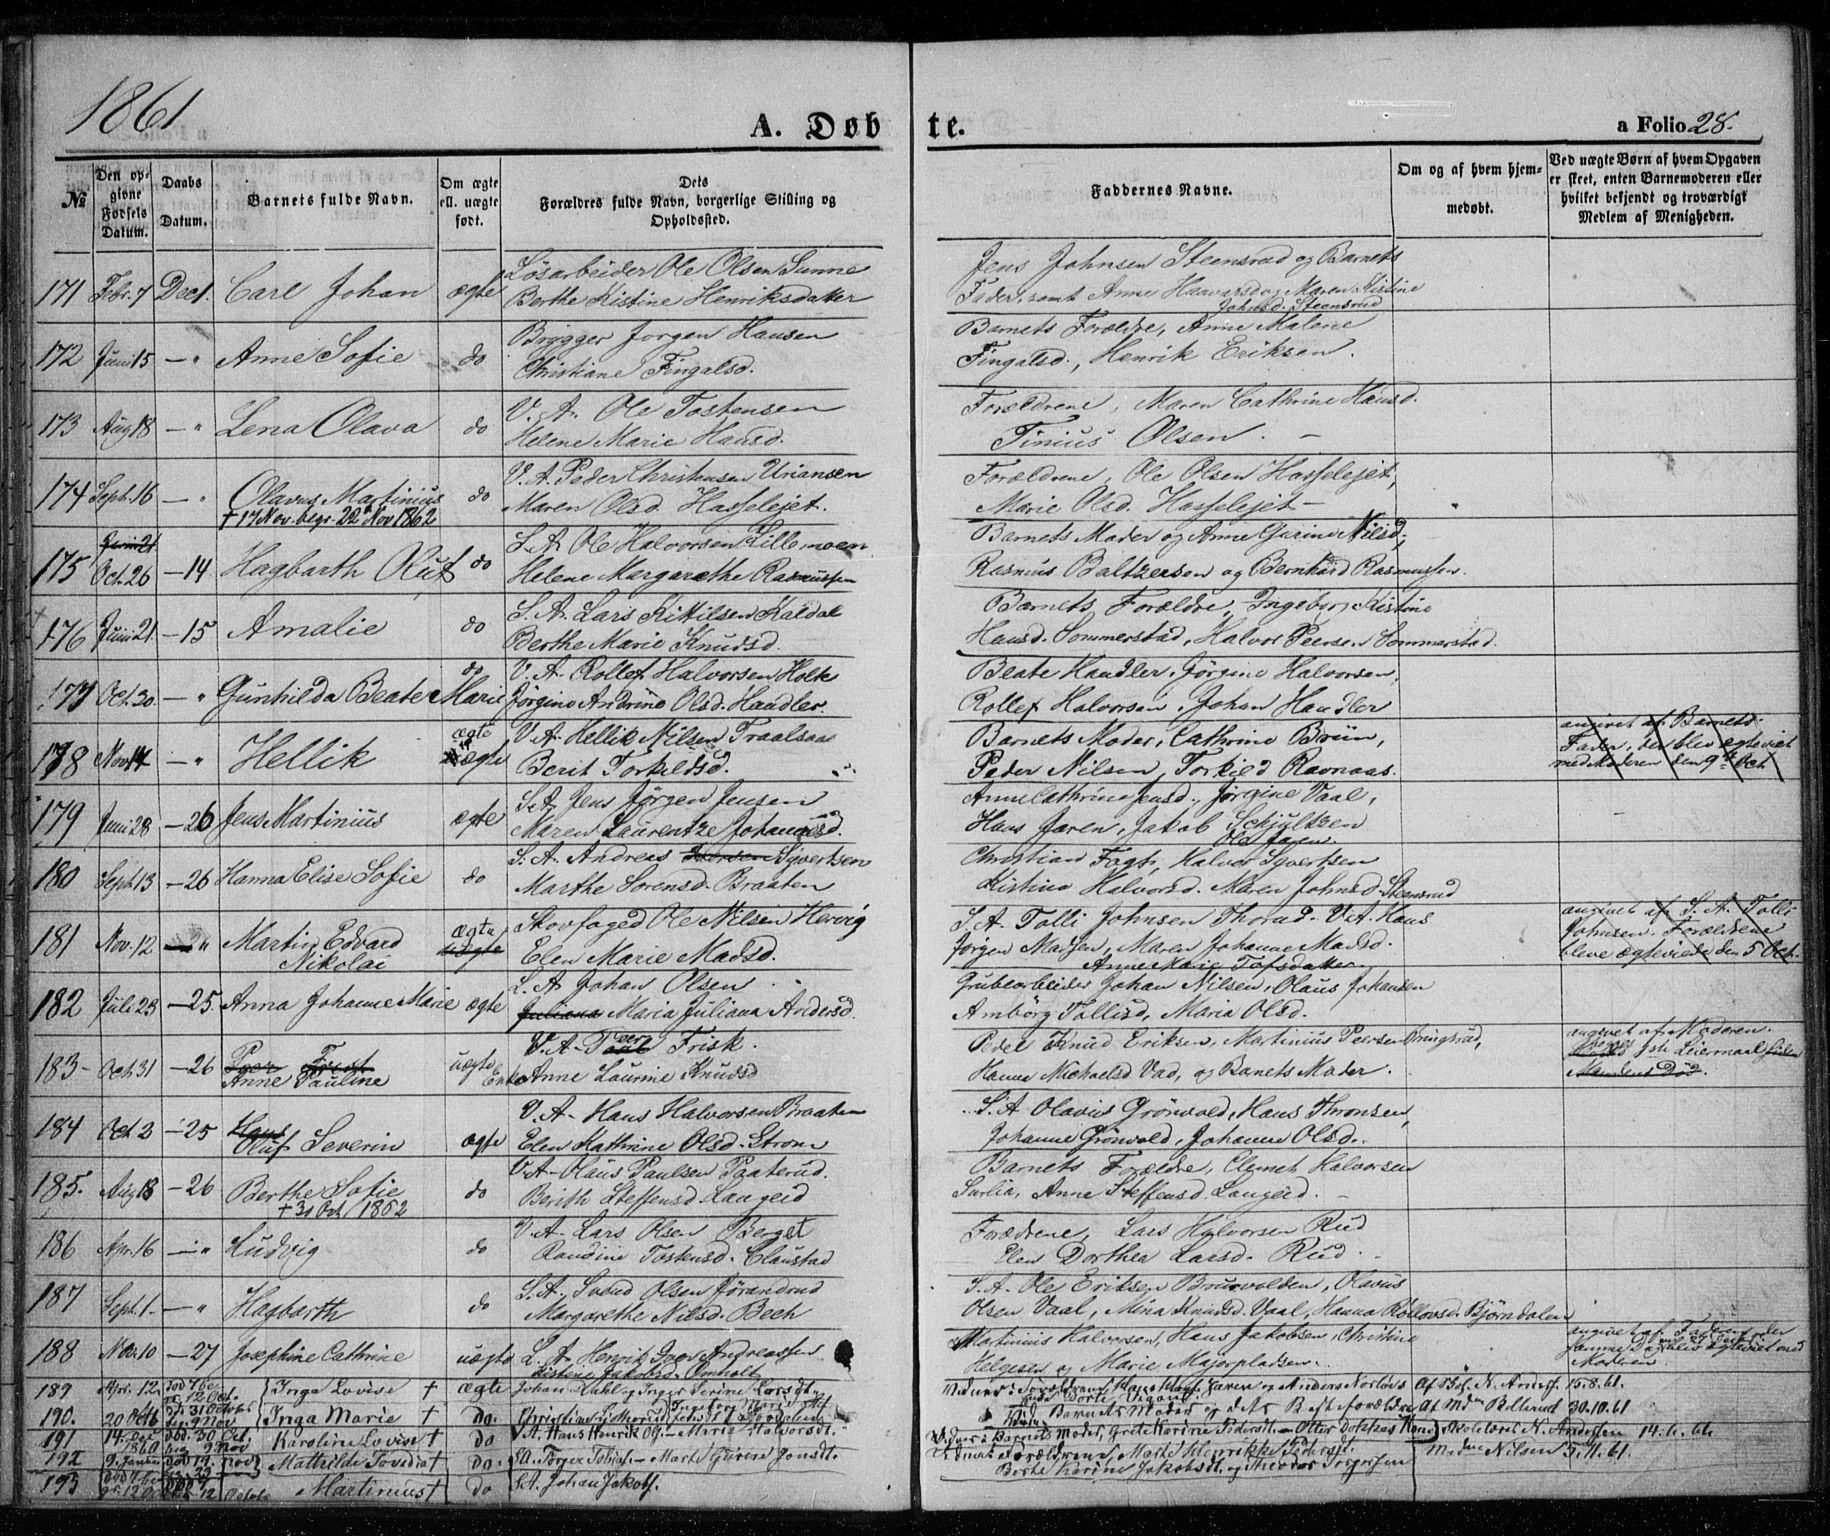 1861
A. Døbte.
a Folio 28.
№
Den opgivne Fødsels Datum.
Daabs Datum.
Barnets fulde Navn.
Om ægte ell. uægte født.
Dets Forældres fulde Navn, borgerlige Stilling og Opholdssted.
Faddernes Navne.
Om og af hvem hjemmedøbt.
Ved uægte Børn af hvem Opgaven er skeet, enten Barnemoderen eller hvilket bekjendt og troværdigt Medlem af Menigheden.
171 Febr. 7 Dec 1. Carl Johan ægte Løsarbeider Ole Olsen Sunne
Berthe Kistine Henriksdatter
Jens Johnsen Steensrud og Barnets
Fader, samt Anne Haavarsd og Maren Kistine
Johnsd. Steensrud
172 Juni 15 — " Anne Sofie do Brygger Jørgen Hansen
Christiane Fingalsd.
Barnets Forældre, Anne Malene
Fingalsd., Henrik Eriksen.
173 Aug 18 — " Lena Olava do V. A. Ole Tostensen
Helene Marie Hansd.
Forældrene, Maren Cathrine Hansd.
Tinius Olsen. —
174 Sept. 16 — " Olavus Martinius do V. A. Peder Christensen Uriansen
† 17 Nov. begr. 22 Nov 1862
Maren Olsd. Hasselejet.
Forældrene, Ole Olsen Hasselejet,
Marie Olsd. Hasselejet —
175 Oct. 26 — 14 Hagbarth Oluf do S. A. Ole Halvorsen Lillemoen
Helene Margarethe Rasmussen
Barnets Moder og Anne Gurine Nilsd.,
Rasmus Baltzersen og Bernhard Rasmussen.
176 Juni 21. — 15 Amalie do S. A. Lars Kittilsen Kaldal
Berthe Marie Knudsd.
Barnets Forældre, Ingeborg Kistine
Hansd. Sommerstad, Halvor Peersen Sommerstad.
177 Oct. 30. — " Gunhilda Beate Marie do V. A. Rollef Halvorsen Holte
Jørgine Andrine Olsd. Handler.
Beate Handler, Jørgine Halvorsen,
Rollef Halvorsen, Johan Handler
178 Nov 14 — " Hellik ægte uægte V. A. Hellik Nilsen Traalsaas
Berit Torkildsd.
Barnets Moder, Cathrine Bruun,
Peder Nilsen, Torkild Ravnaas.
angivet af Barnets
Fader, der blev ægteviet
med Moderen den 9de Oct.
179 Juni 28 — 26 Jens Martinius ægte S. A. Jens Jørgen Jensen
Maren Laurentze Johannesd.
Anne Cathrine Jensd., Jørgine Vaal,
Hans Jaren, Jakob Schjultzen
180 Sept 13 — 26 Hanna Elise Sofie do S. A. Andreas Iversen Syvertsen
Marthe Sørensd. Braaten
Christian Fogt, Halvor Syvertsen
Kistine Halvorsd. Maren Johnsd. Steensrud
181 Nov. 12 — " Martin Edvard
Nikolai
ægte uægte
Skovfoged Ole Nilsen Hervig
Elen Marie Madsd.
S. A. Tolli Johnsen Thorud. V. A. Hans
Jørgen Madsen, Maren Johanne Madsd.
Anne Marie Tofsdatter.
angivet af S. A. Tolli
Johnsen. Forældrene
bleve ægteviede den 5 Oct.
182 Juli 23 — 25. Anna Johanne Marie ægte L. A. Johan Olsen
Juliana Maria Juliana Andersd.
Grubearbeider Johan Nilsen, Olaus Johansen
Ambörg Tollisd, Maria Olsd.
183 — Oct. 31 — 26 Anne Pauline uægte V. A. Peer Frisk.
Enke Anne Laurine Knudsd
Peder Knud Eriksen, Martinius Peersen Kringsrud,
Hanne Michaelsd Vad, og Barnets Moder.
angivet af Moderen.
1ste Leiermaal
Mandens Død.
184 Oct 2 — 25 Hans
Oluf Severin ægte V. A. Hans Halvorsen Braaten
Elen Kathrine Olsd. Strøm
S. A. Olavus Grönvold, Hans Thronsen,
Johanne Grönvold, Johanne Olsd.
185. Aug 18 — 26 Berthe Sofie
† 31 Oct 1862
do V. A. Olaus Paulsen Paaterud.
Berith Steffensd. Langeid
Barnets Forældre, Clemet Halvorsen
Surlia, Anne Steffensd. Langeid. —
186 Apr. 16 — " Ludvig do V. A. Lars Olsen Berget
Randine Tostensd. Claustad
Forældrene, Lars Halvorsen Rud
Elen Dorthea Larsd. Rud.
187 Sept. 1. — " Hagbarth do S. A. Svend Olsen Jørandrud
Margarethe Nilsd. Bech
S. A. Ole Eriksen Brunvolden, Olavus
Olsen Vaal, Mina Knudsd. Vaal, Hanna Rollovsd. Bjørndalen
188 Nov. 10 — 27 Josephine Cathrine uægte L. A. Henrik Iver Andreassen
Kistene Jakobsd. Omholt
Martinius Halvorsen, Hans Jakobsen, Christine
Helgesen og Marie Majorpladsen.
angivet af Faderen, der
Moderen
189 Apr. 12. Inga Lovise † ægte Johan Kuhl og Inger Serine Larsdt.
Af Bes. N. Anderss. 15.8.61.
190. 20 Octb Inga Marie † do.
Barnets Moder og dets Bedsteforældre Af Mdm Bellerud 30.10.61
191 14. Dec 1860 død 30 Oct. beg 9 Nov Karoline Lovise † do S. A. Hans Henrik Og. — Marie Halvorsdt.
Vidner: Barnets Moder, Grethe Karine Pedersdt. — Skolelærer N. Anderssen 14.6.61.
192 9. Januar død 19. Mathilde Tovidia † do. SA. Torger Tobias. — Marte Gurine Jonsdt.
Vidner: Forældrene, Marte Henrikke Pedersdt. Mdm Nilsen 5.11.61.
Berte Karine Jakobsdt. og Theodor Torgersen
193 Martinius † do S. A. Johan Jakobs.